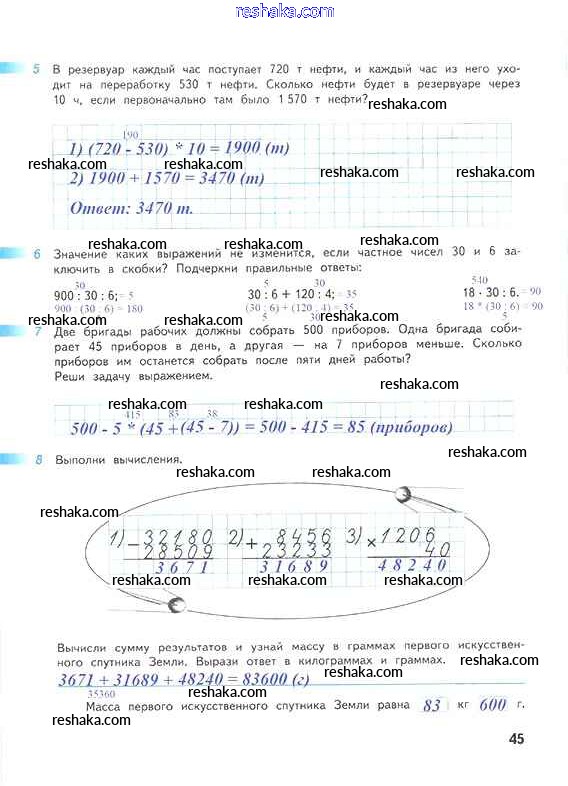 reshaka.com
5 В резервуар каждый час поступает 720 т нефти, и каждый час из него ухо-
дит на переработку 530 т нефти. Сколько нефти будет в резервуаре через
10 ч, если первоначально там было 1 570 т нефти?
reshaka.com
190
1) (720 - 530) * 10 = 1900 (т)
reshaka.com reshaka.com reshaka.com
2) 1900 + 1570 = 3470 (т)
Ответ: 3470 т.
reshaka.com reshaka.com
6 Значение каких выражений не изменится, если частное чисел 30 и 6 за-
ключить в скобки? Подчеркни правильные ответы:
reshaka.com
30 5 30 540
900 : 30 : 6; = 5 30 : 6 + 120 : 4; = 35 18 · 30 : 6. = 90
900 (30 : 6) = 180 (30 : 6) + (120 : 4) = 35 18 * (30 : 6) = 90
5 30 5
reshaka.com reshaka.com reshaka.com
7 Две бригады рабочих должны собрать 500 приборов. Одна бригада соби-
рает 45 приборов в день, а другая — на 7 приборов меньше. Сколько
приборов им останется собрать после пяти дней работы?
Реши задачу выражением.
reshaka.com reshaka.com reshaka.com
415 83 38
500 - 5 * (45 +(45 - 7)) = 500 - 415 = 85 (приборов)
reshaka.com
8 Выполни вычисления.
reshaka.com reshaka.com
reshaka.com reshaka.com
1) - 32180 2) + 8456 3) × 1206
28509 23233 40
3671 31689 48240
reshaka.com reshaka.com reshaka.com
Вычисли сумму результатов и узнай массу в граммах первого искусствен-
ного спутника Земли. Вырази ответ в килограммах и граммах.
reshaka.com
3671 + 31689 + 48240 = 83600 (г)
35360
reshaka.com reshaka.com
Масса первого искусственного спутника Земли равна 83 кг 600 г.
reshaka.com
45
reshaka.com